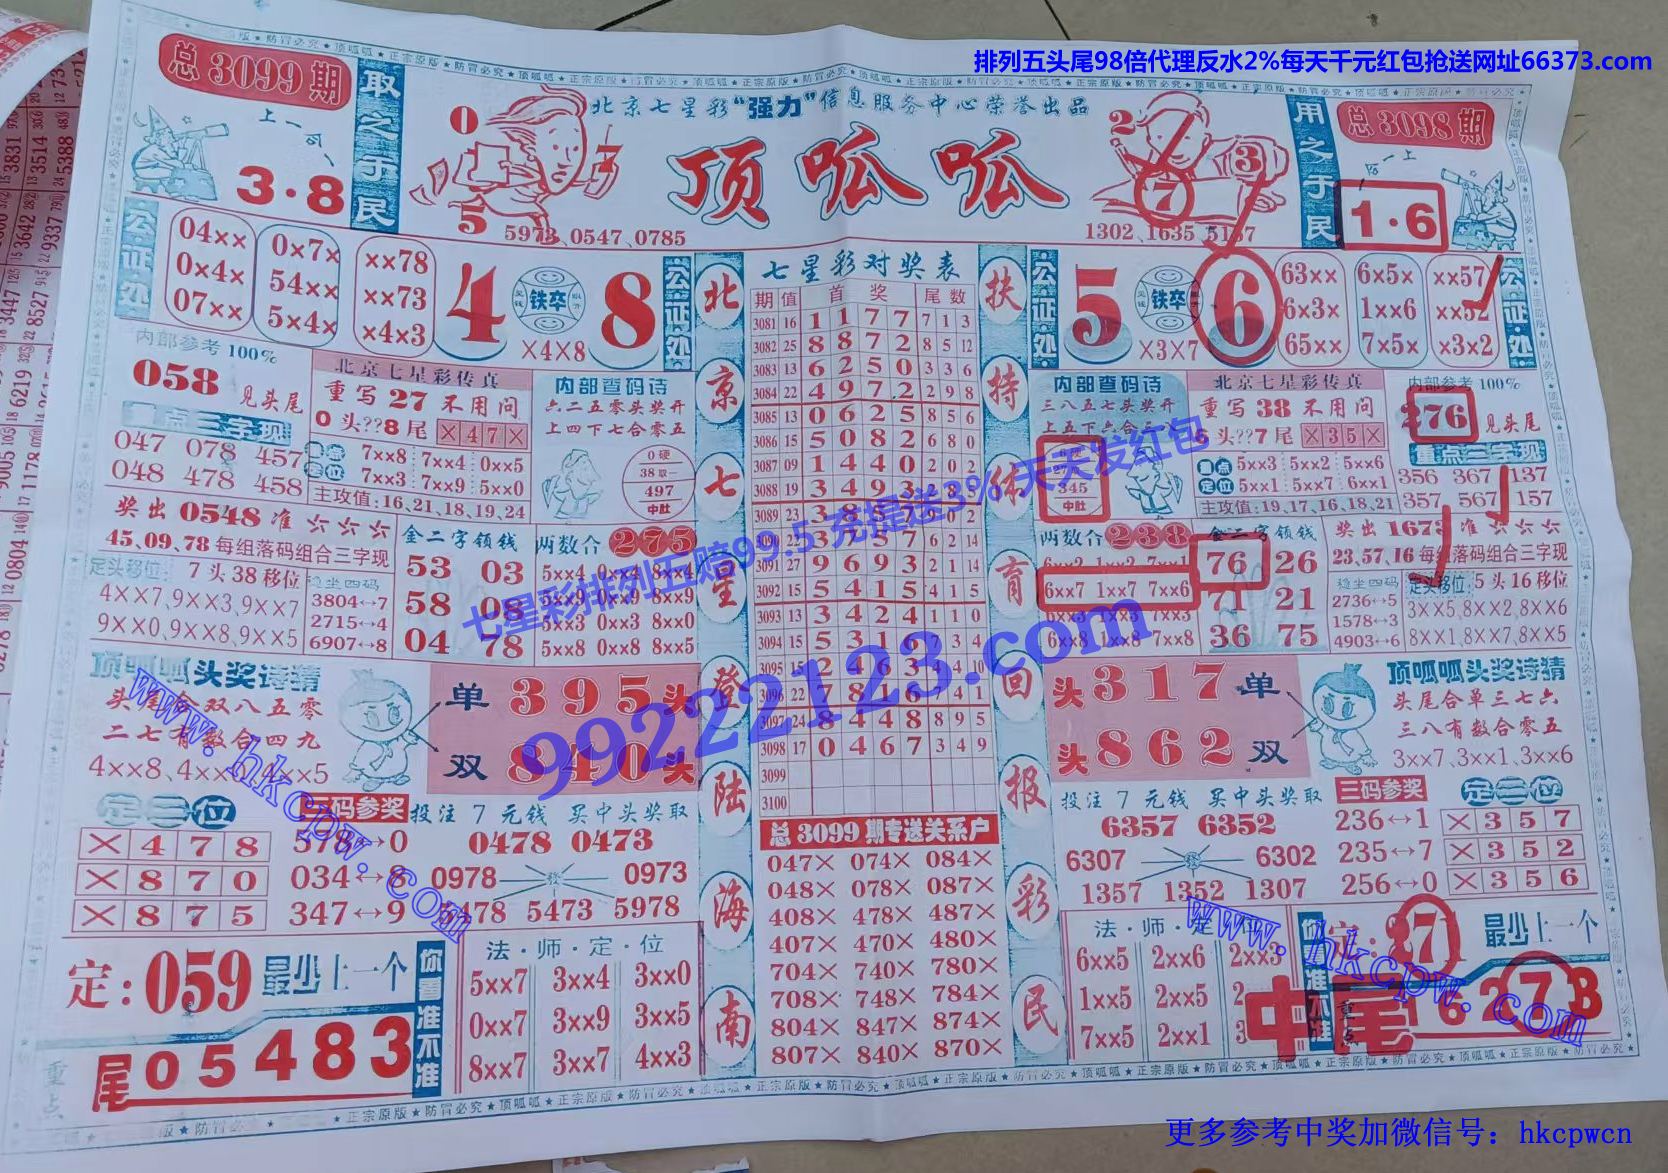 排列五头尾98倍代理反水2%每天千元红包抢送网址66373.com
总3099期
取之于民
上一句
3·8
北京七星彩"强力"信息服务中心荣誉出品
顶呱呱
0
5
5973、0547、0785
2
7
3
1302、1635
用之于民
总3098期
1·6
公证处
04×× 0×7× ××78
0×4× 54×× ××73
07×× 5×4× ×4×3
4 铁卒 8
×4×8
公证处
内部参考100%
058 见头尾
重点三字现
047 078 457
048 478 458
北京七星彩传真
重写27不用问
0头??8尾 ×47×
重点定位
7××8 7××4 0××5
7××3 7××9 5××0
主攻值:16,21,18,19,24
内部查码诗
六二五零头奖开
上四下七合零五
0硬
38取一
497
中肚
奖出0548准六六六
45,09,78每组落码组合三字现
定头移位: 7头38移位
4××7,9××3,9××7
9××0,9××8,9××5
稳坐四码
3804↔7
2715↔4
6907↔8
金二字领钱
53 03
58 08
04 78
两数合 275
5××4 0××4 8××4
5××9 0××9 8××9
5××3 0××3 8××0
5××8 0××8 8××5
顶呱呱头奖诗猜
头尾合双八五零
二七有数合四九
单 395头
双 840头
定三位
×478
×870
×875
三码参奖
578↔0
034↔8
347↔9
投注7元钱 买中头奖取
0478 0473
0978 0973
5478 5473 5978
定:059最少上一个
尾05483
你看准不准
重点
法·师·定·位
5××7 3××4 3××0
0××7 3××9 3××5
8××7 3××7 4××3
北京七星登陆海南
七星彩对奖表
期 值 首奖 尾数
3081 16 1 1 7 7 7 1 3
3082 25 8 8 7 2 8 5 12
3083 13 6 2 5 0 3 3 6
3084 22 4 9 7 2 2 9 8
3085 13 0 6 2 5 8 5 6
3086 15 5 0 8 2 6 8 0
3087 09 1 4 4 0 2 0 2
3088 19 3 4 9 3 2 8 5
3089 23 3 8 5 7 9 0 2
3090 22 3 7 5 7 6 2 14
3091 27 9 6 9 3 2 1 14
3092 15 5 4 1 5 4 1 5
3093 13 3 4 2 4 1 1 0
3094 15 5 3 1 6 7 3 4
3095 15 2 4 6 3
3096 22 7 8 1 6
3097 24 8 4 4 8 8 9 5
3098 17 0 4 6 7 3 4 9
3099
3100
总3099期专送关系户
047× 074× 084×
048× 078× 087×
408× 478× 487×
407× 470× 480×
704× 740× 780×
708× 748× 784×
804× 847× 874×
807× 840× 870×
扶持体育回报彩民
公证处
5 铁卒 6
×3×7
63×× 6×5× ××57
6×3× 1××6 ××52
65×× 7×5× ×3×2
公证处
内部查码诗
三八五七头奖开
345
中肚
北京七星彩传真
重写38不用问
??7尾 ×35×
重点定位
5××3 5××2 5××6
5××1 5××7 6××1
主攻值:19,17,16,18,21
内部参考100%
276 见头尾
重点三字现
356 367 137
357 567 157
两数合 238
6××7 1××7 7××6
6××8 1××8 7××8
金二字领钱
76 26
71 21
36 75
奖出1673准六六六
23,57,16每组落码组合三字现
稳坐四码
2736↔5
1578↔3
4903↔6
定头移位: 5头16移位
3××5,8××2,8××6
8××1,8××7,8××5
头317单
头862双
顶呱呱头奖诗猜
头尾合单三七六
三八有数合零五
3××7、3××1、3××6
投注7元钱 买中头奖取
6357 6352
6307 6302
1357 1352 1307
三码参奖
236↔1
235↔7
256↔0
定三位
×357
×352
×356
法·师·定
6××5 2××6 2××3
1××5 2××5
7××5 2××1
最少上一个
中尾
重点
七星彩排列五赔99.5 充提送3%天天发红包
99222123.com
www.hkcpw.com
www.hkcpw.com
更多参考中奖加微信号：hkcpwcn